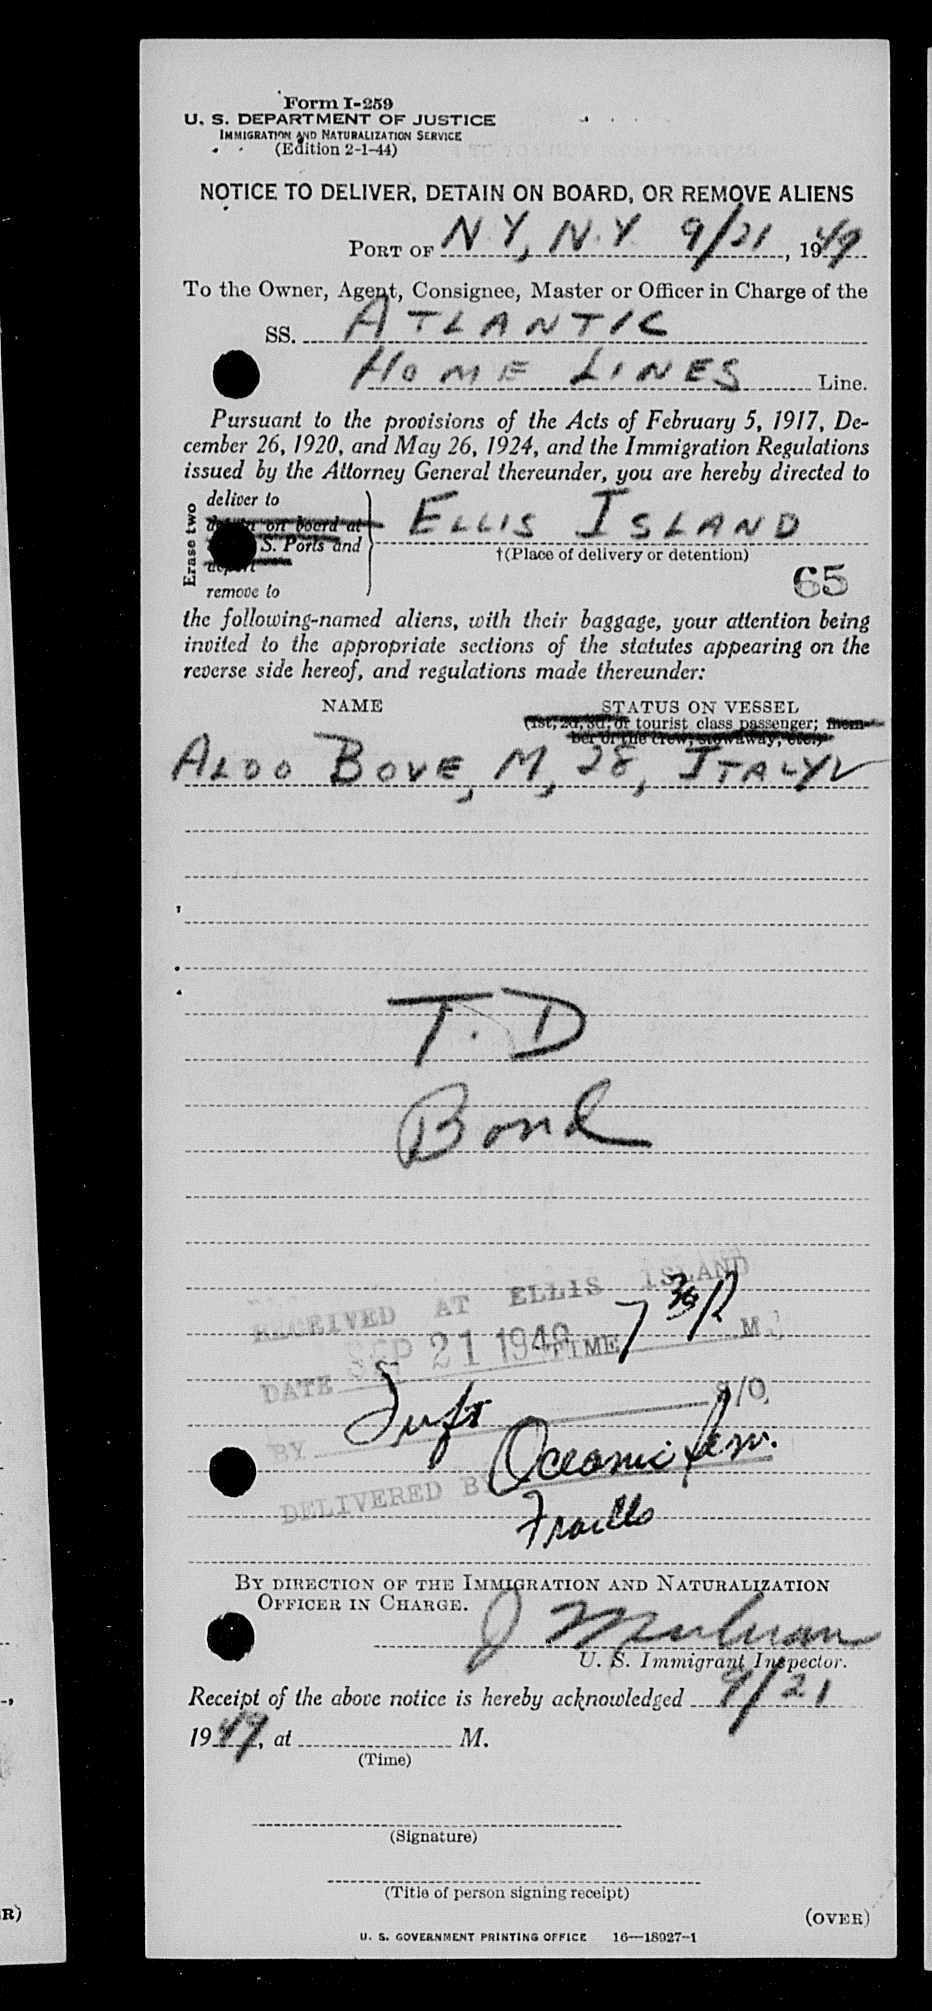 Form I-259
U. S. DEPARTMENT OF JUSTICE
IMMIGRATION AND NATURALIZATION SERVICE
(Edition 2-1-44)
NOTICE TO DELIVER, DETAIN ON BOARD, OR REMOVE ALIENS
PORT OF N.Y, N.Y 9/21, 1949
To the Owner, Agent, Consignee, Master or Officer in Charge of the
SS. ATLANTIC
HOME LINES Line.
Pursuant to the provisions of the Acts of February 5, 1917, De-
cember 26, 1920, and May 26, 1924, and the Immigration Regulations
issued by the Attorney General thereunder, you are hereby directed to
Erase two
deliver to
on board at ELLIS ISLAND
S. Ports and
†(Place of delivery or detention)
deport
65
remove to
the following-named aliens, with their baggage, your attention being
invited to the appropriate sections of the statutes appearing on the
reverse side hereof, and regulations made thereunder:
NAME STATUS ON VESSEL
(1st, 2d, 3d, or tourist class passenger; mem-
ber of the crew, stowaway, etc.)
ALDO BOVE, M, 28, ITALY
T. D
Bond
RECEIVED AT ELLIS ISLAND
DATE SEP 21 1949 TIME 7 30 P M.
BY
DELIVERED BY Oceanic
BY DIRECTION OF THE IMMIGRATION AND NATURALIZATION
OFFICER IN CHARGE.
U. S. Immigrant Inspector.
Receipt of the above notice is hereby acknowledged 9/21
1949, at M.
(Time)
(Signature)
(Title of person signing receipt)
(OVER)
U. S. GOVERNMENT PRINTING OFFICE 16—18927-1
R)